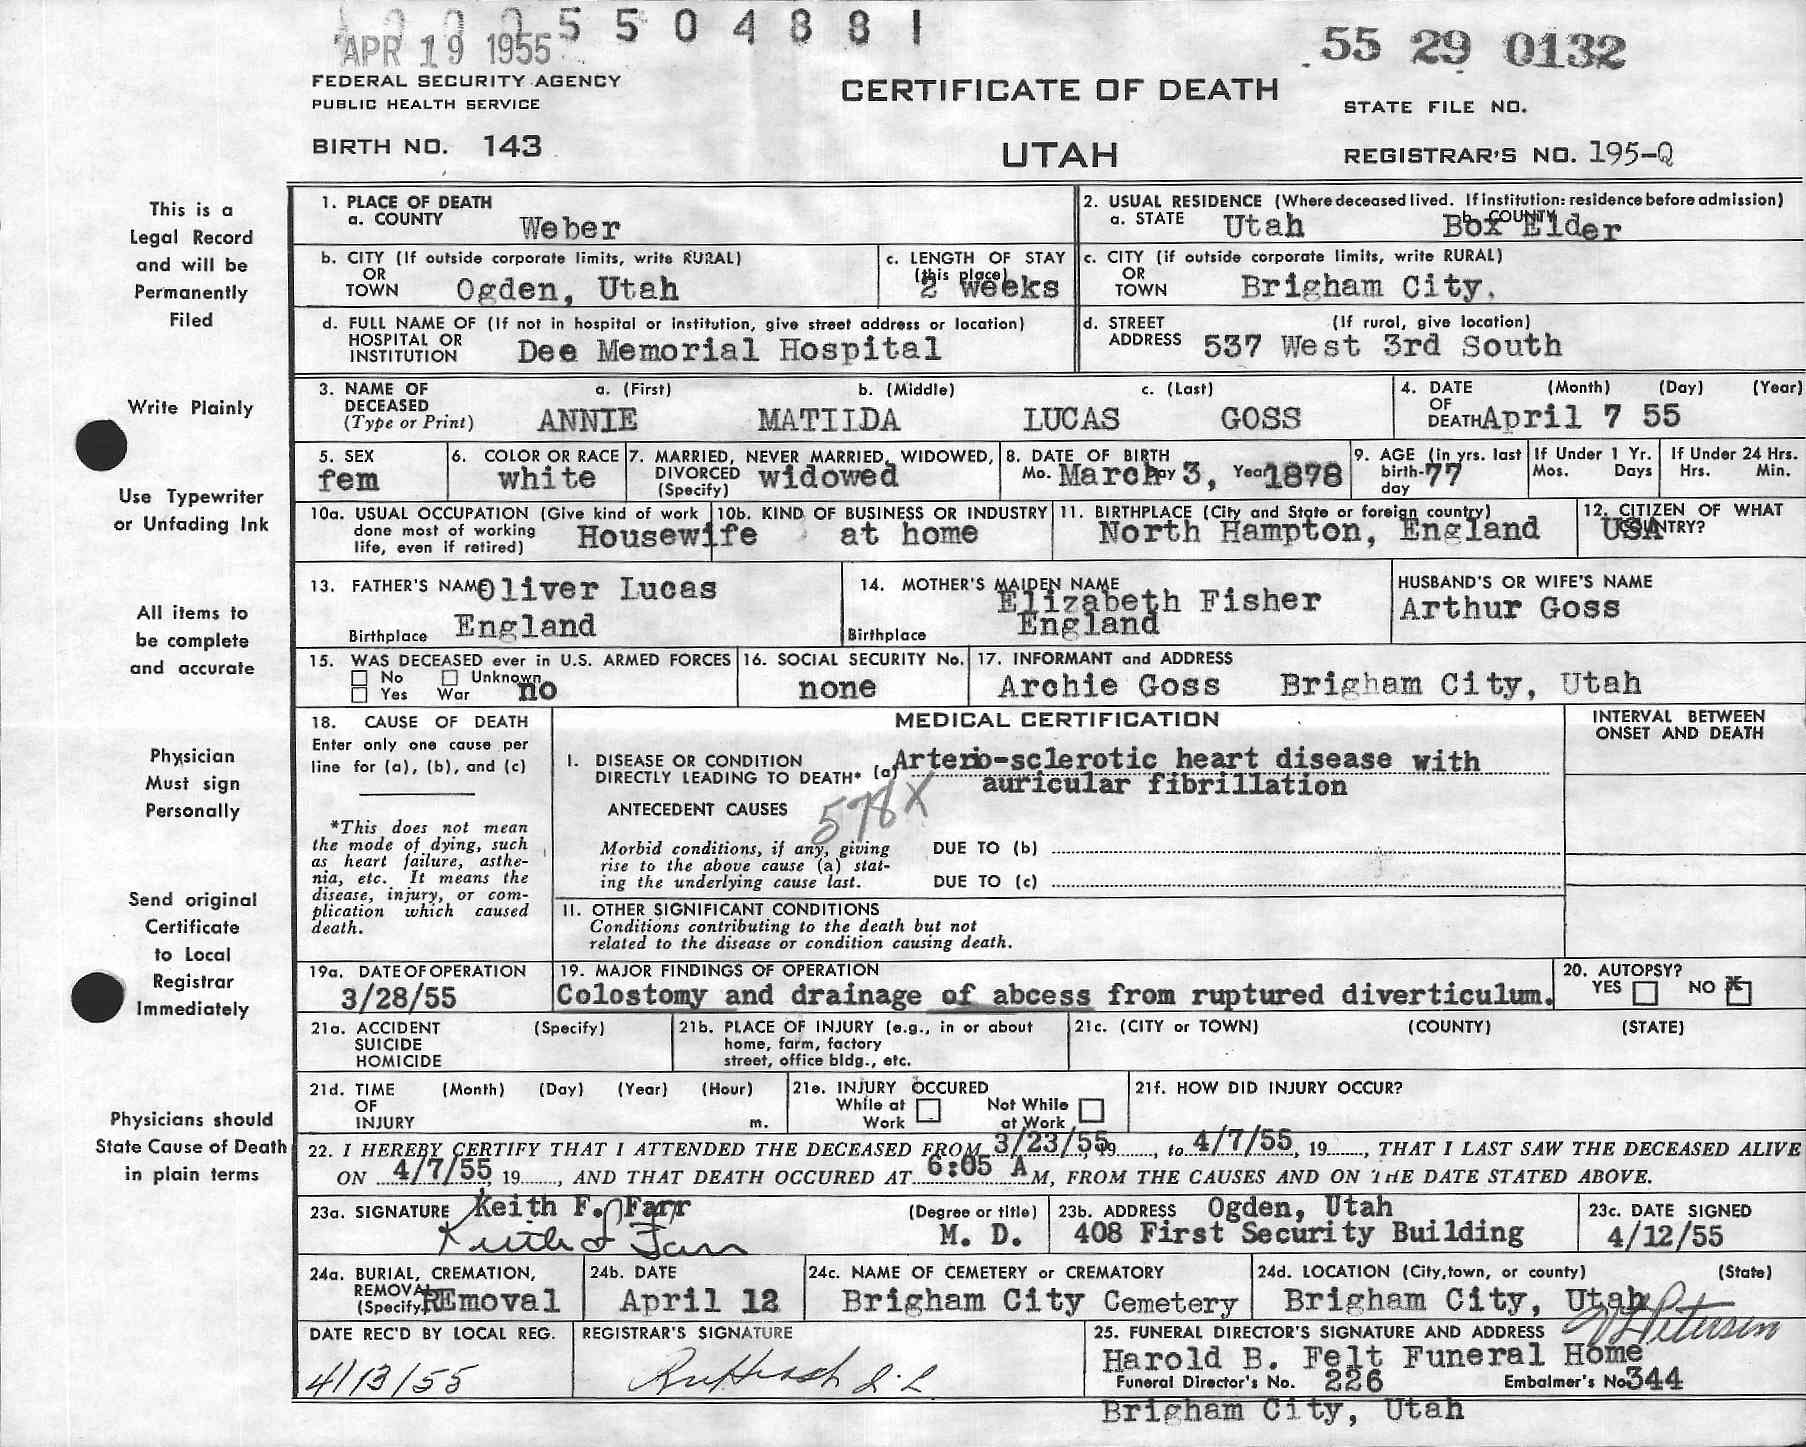 5504881
APR 19 1955
55 29 0132
FEDERAL SECURITY AGENCY
PUBLIC HEALTH SERVICE
CERTIFICATE OF DEATH
STATE FILE NO.
BIRTH NO. 143
UTAH
REGISTRAR'S NO. 195-Q
This is a
Legal Record
and will be
Permanently
Filed
Write Plainly
Use Typewriter
or Unfading Ink
All items to
be complete
and accurate
Physician
Must sign
Personally
Send original
Certificate
to Local
Registrar
Immediately
Physicians should
State Cause of Death
in plain terms
1. PLACE OF DEATH
a. COUNTY Weber
2. USUAL RESIDENCE (Where deceased lived. If institution: residence before admission)
a. STATE Utah b. COUNTY Box Elder
b. CITY (If outside corporate limits, write RURAL)
OR
TOWN Ogden, Utah
c. LENGTH OF STAY
(this place)
2 weeks
c. CITY (if outside corporate limits, write RURAL)
OR
TOWN Brigham City.
d. FULL NAME OF (If not in hospital or institution, give street address or location)
HOSPITAL OR
INSTITUTION Dee Memorial Hospital
d. STREET (If rural, give location)
ADDRESS 537 West 3rd South
3. NAME OF a. (First) b. (Middle) c. (Last)
DECEASED
(Type or Print) ANNIE MATILDA LUCAS GOSS
4. DATE (Month) (Day) (Year)
OF
DEATH April 7 55
5. SEX
fem
6. COLOR OR RACE
white
7. MARRIED, NEVER MARRIED, WIDOWED,
DIVORCED widowed
(Specify)
8. DATE OF BIRTH
Mo. March Day 3, Year 1878
9. AGE (In yrs. last
birth- 77
day
If Under 1 Yr.
Mos. Days
If Under 24 Hrs.
Hrs. Min.
10a. USUAL OCCUPATION (Give kind of work
done most of working
life, even if retired) Housewife
10b. KIND OF BUSINESS OR INDUSTRY
at home
11. BIRTHPLACE (City and State or foreign country)
North Hampton, England
12. CITIZEN OF WHAT
COUNTRY?
USA
13. FATHER'S NAME Oliver Lucas
Birthplace England
14. MOTHER'S MAIDEN NAME
Elizabeth Fisher
Birthplace England
HUSBAND'S OR WIFE'S NAME
Arthur Goss
15. WAS DECEASED ever in U.S. ARMED FORCES
No Unknown
Yes War no
16. SOCIAL SECURITY No.
none
17. INFORMANT and ADDRESS
Archie Goss Brigham City, Utah
18. CAUSE OF DEATH
Enter only one cause per
line for (a), (b), and (c)
*This does not mean
the mode of dying, such
as heart failure, asthe-
nia, etc. It means the
disease, injury, or com-
plication which caused
death.
MEDICAL CERTIFICATION
I. DISEASE OR CONDITION
DIRECTLY LEADING TO DEATH* (a) Arterio-sclerotic heart disease with
auricular fibrillation
ANTECEDENT CAUSES
578X
Morbid conditions, if any, giving
rise to the above cause (a) stat-
ing the underlying cause last.
DUE TO (b)
DUE TO (c)
II. OTHER SIGNIFICANT CONDITIONS
Conditions contributing to the death but not
related to the disease or condition causing death.
INTERVAL BETWEEN
ONSET AND DEATH
19a. DATE OF OPERATION
3/28/55
19. MAJOR FINDINGS OF OPERATION
Colostomy and drainage of abcess from ruptured diverticulum.
20. AUTOPSY?
YES NO X
21a. ACCIDENT (Specify)
SUICIDE
HOMICIDE
21b. PLACE OF INJURY (e.g., in or about
home, farm, factory
street, office bldg., etc.
21c. (CITY or TOWN) (COUNTY) (STATE)
21d. TIME (Month) (Day) (Year) (Hour)
OF
INJURY m.
21e. INJURY OCCURED
While at Not While
Work at Work
21f. HOW DID INJURY OCCUR?
22. I HEREBY CERTIFY THAT I ATTENDED THE DECEASED FROM 3/23/55, 19, to 4/7/55, 19, THAT I LAST SAW THE DECEASED ALIVE
ON 4/7/55, 19, AND THAT DEATH OCCURED AT 6:05 A M, FROM THE CAUSES AND ON THE DATE STATED ABOVE.
23a. SIGNATURE Keith F. Farr
Keith F Farr
(Degree or title)
M. D.
23b. ADDRESS Ogden, Utah
408 First Security Building
23c. DATE SIGNED
4/12/55
24a. BURIAL, CREMATION,
REMOVAL
(Specify) REmoval
24b. DATE
April 12
24c. NAME OF CEMETERY or CREMATORY
Brigham City Cemetery
24d. LOCATION (City, town, or county) (State)
Brigham City, Utah
DATE REC'D BY LOCAL REG.
4/13/55
REGISTRAR'S SIGNATURE
25. FUNERAL DIRECTOR'S SIGNATURE AND ADDRESS Petersen
Harold B. Felt Funeral Home
Funeral Director's No. 226 Embalmer's No. 344
Brigham City, Utah